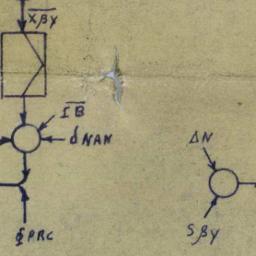 XβY
IB
dNAN
ΔN
ϕPRC
SβY